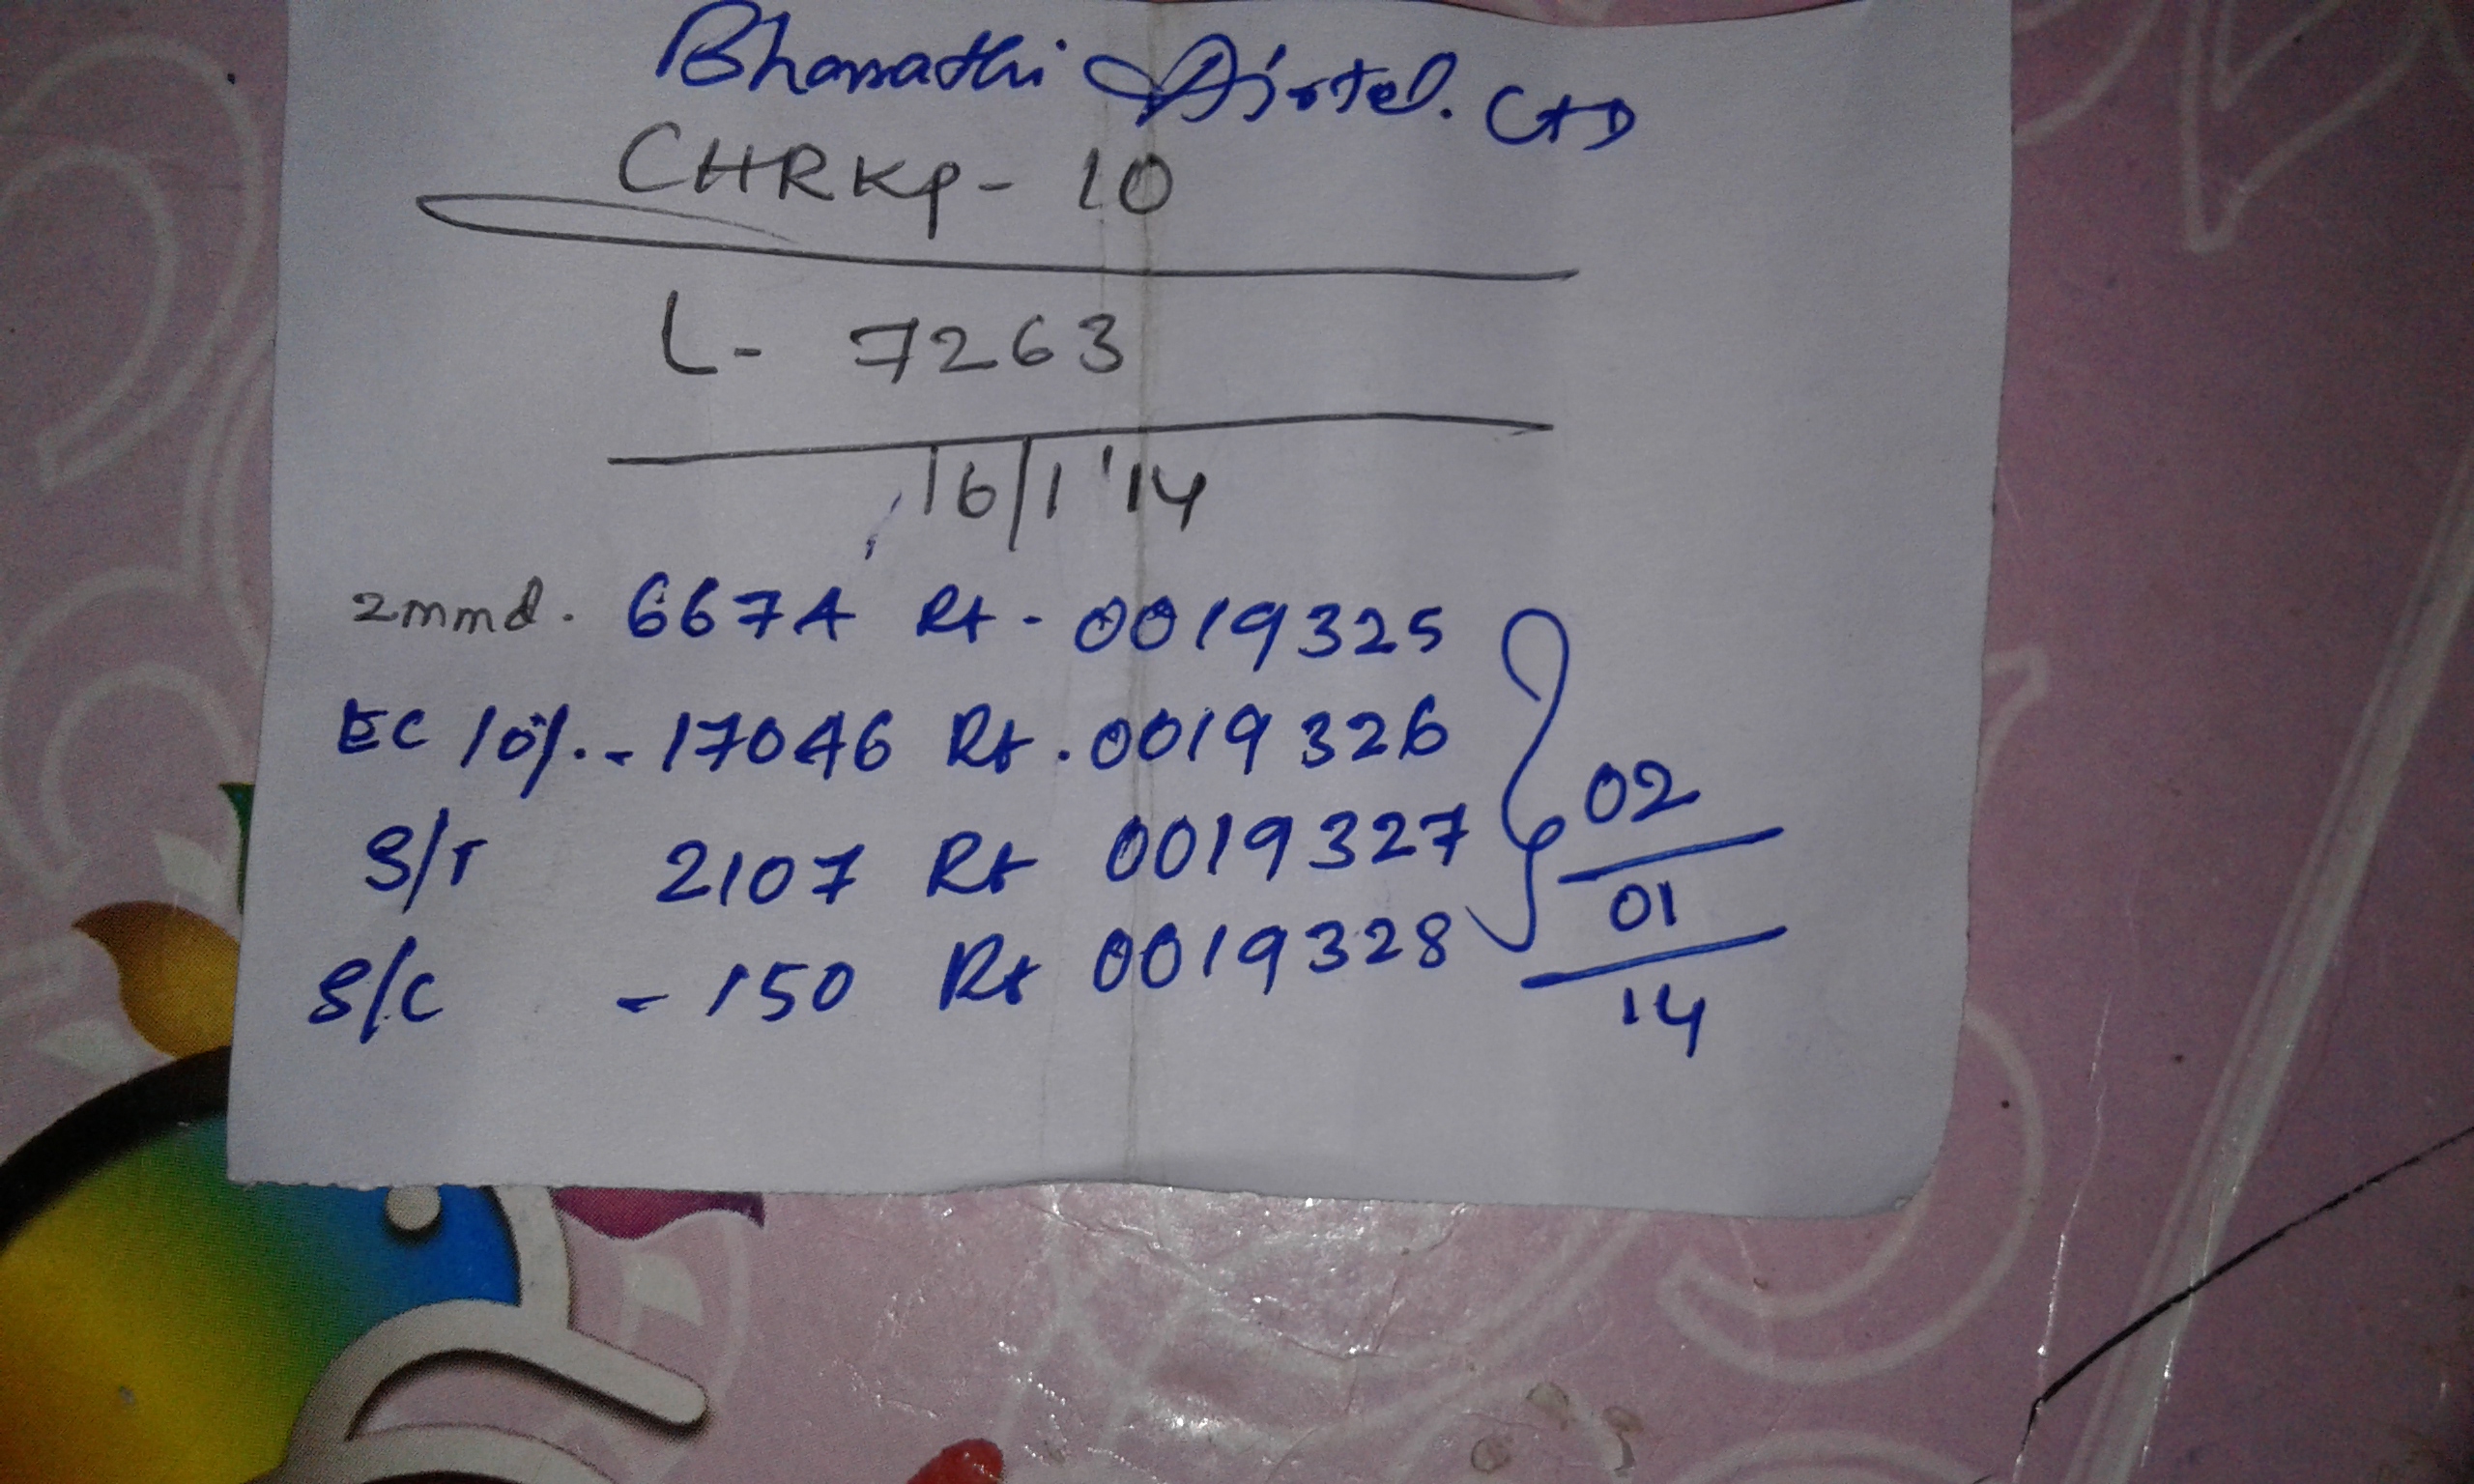 Bharathi Airtel. LTD
CHRKP - 10
L - 7263
16/1'14
2mmd. 6674 Rt - 0019325
EC 10%. - 17046 Rt. 0019326
S/T 2107 Rt 0019327
S/C - 150 Rt 0019328
02
01
14